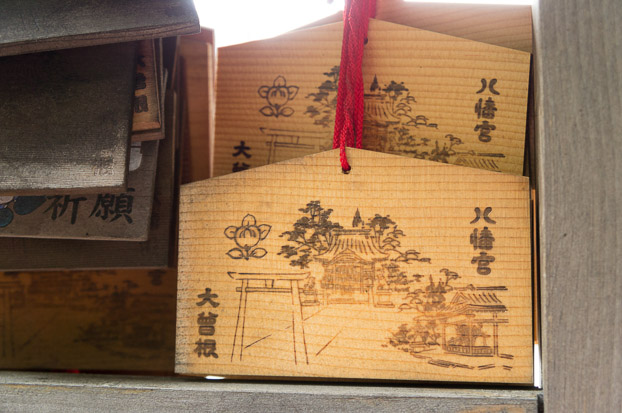 八幡宮
大曽根
八幡宮
大曽
祈願
願